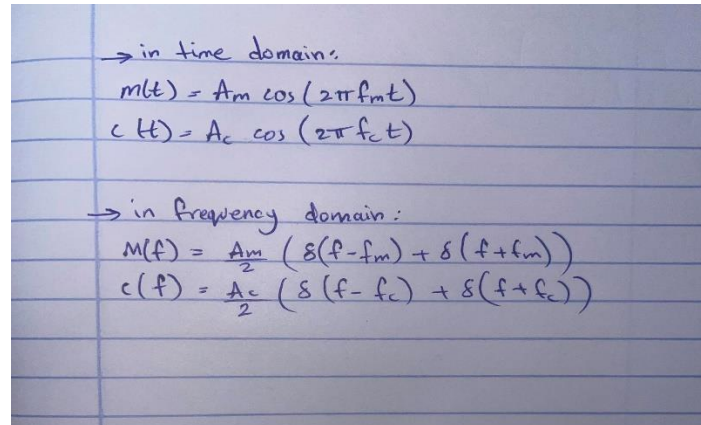 → in time domain:
m(t) = Am cos(2πfmt)
c(t) = Ac cos(2πfct)
→ in frequency domain:
M(f) = Am/2 (δ(f-fm) + δ(f+fm))
c(f) = Ac/2 (δ(f-fc) + δ(f+fc))